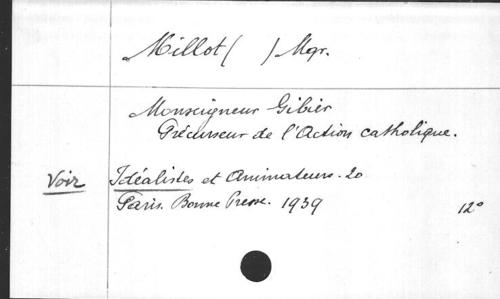 Millot ( ) Mgr.
Monseigneur Gibier
Précurseur de l'Action catholique.
Voir Idéalistes et Animateurs. 20
Paris. Bonne Presse. 1939 12°